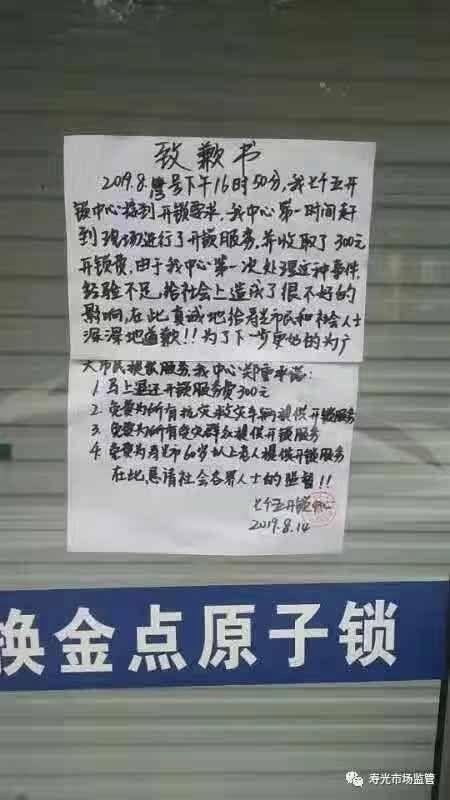 致歉书
2019.8.号下午16时50分,我七个五开
锁中心接到开锁要求,我中心第一时间赶
到现场进行了开锁服务,并收取了300元
开锁费,由于我中心第一次处理这种事件,
经验不足,给社会上造成了很不好的
影响,在此真诚地给寿光市民和社会人士
深深地道歉!!为了下一步更好的为广
大市民提供服务,我中心郑重承诺:
1 马上退还开锁服务费300元
2 免费为所有抗灾救灾车辆提供开锁服务
3 免费为所有受灾群众提供开锁服务
4 免费为寿光市60岁以上老人提供开锁服务
在此,恳请社会各界人士的监督!!
七个五开锁中心
2019.8.14
换金点原子锁
寿光市场监管